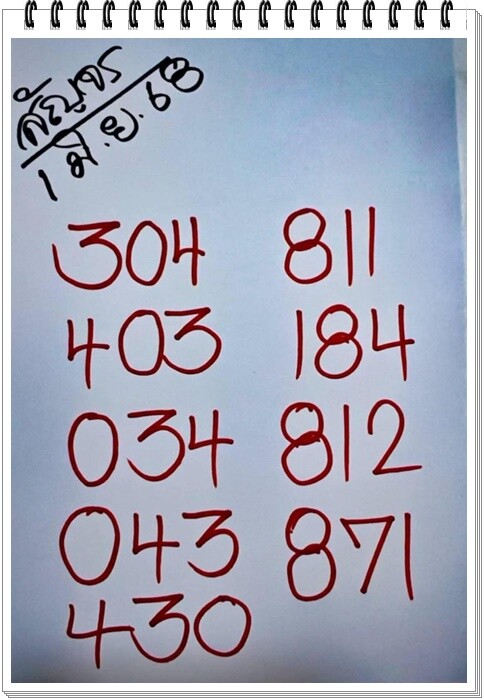 สัญจร
1 มิ.ย. 68
304 811
403 184
034 812
043 871
430